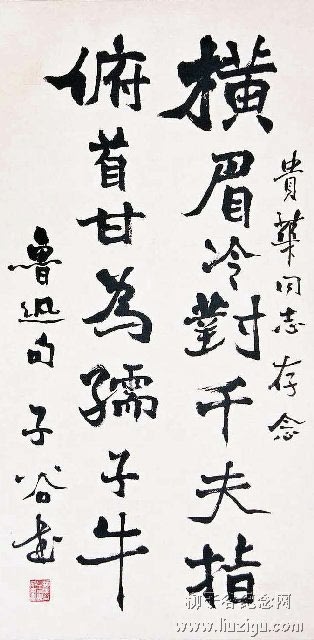 貴華同志存念
橫眉冷對千夫指
俯首甘為孺子牛
魯迅句 子谷書
柳子谷纪念网
www.liuzigu.com